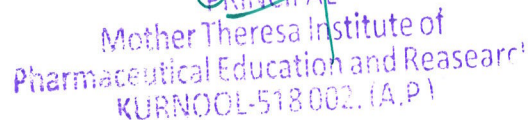 PRINCIPAL
Mother Theresa Institute of
Pharmaceutical Education and Reasearch
KURNOOL-518 002. (A.P)